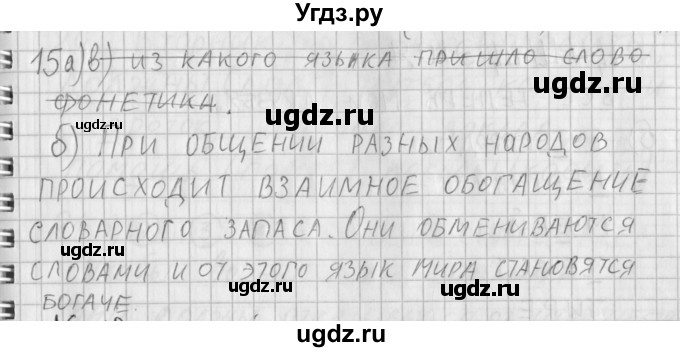 Угдз.ру
15 а)в) из какого языка пришло слово
фонетика.
б) При общении разных народов
происходит взаимное обогащение
словарного запаса. Они обмениваются
словами и от этого язык мира становятся
богаче.
ugdz.ru
ugdz.ru
ugdz.ru
ugdz.ru
ugdz.ru
ugdz.ru
ugdz.ru